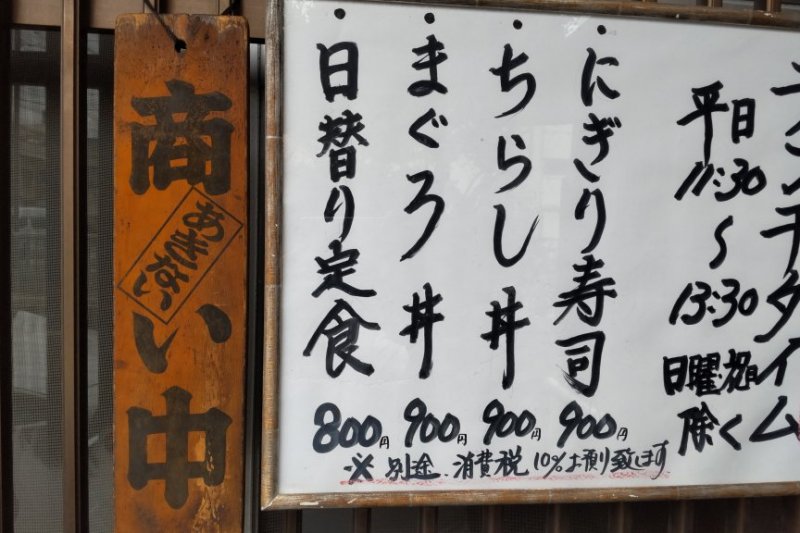 ランチタイム
平日
11:30
〜
13:30
日曜・祝日
除く
・にぎり寿司 900円
・ちらし丼 900円
・まぐろ丼 900円
・日替り定食 800円
※別途、消費税10%お預り致します
商い中
あきない